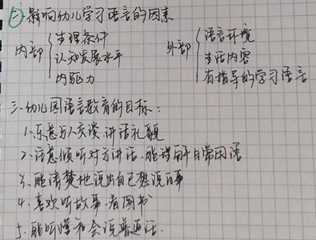 二、影响幼儿学习语言的因素
内部 生理条件 外部 语言环境
认知发展水平 生活内容
内驱力 有指导的学习语言
三、幼儿园语言教育的目标：
1、乐意与人交谈，讲话礼貌
2、注意倾听对方讲话，能理解日常用语
3、能清楚地说出自己想说的事
4、喜欢听故事、看图书
5、能听懂和会说普通话